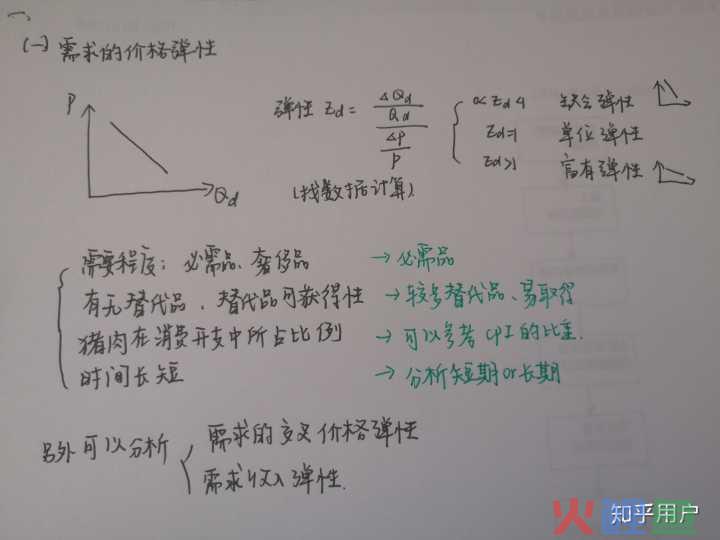 一、
(一) 需求的价格弹性
P
Qd
弹性 Ed = ΔQd/Qd / ΔP/P
(找数据计算)
0<Ed<1 缺乏弹性
Ed=1 单位弹性
Ed>1 富有弹性
需要程度: 必需品、奢侈品 → 必需品
有无替代品、替代品可获得性 → 较多替代品、易取得
猪肉在消费开支中所占比例 → 可以参考 CPI 的比重.
时间长短 → 分析短期or长期
另外可以分析
需求的交叉价格弹性
需求收入弹性.
知乎用户